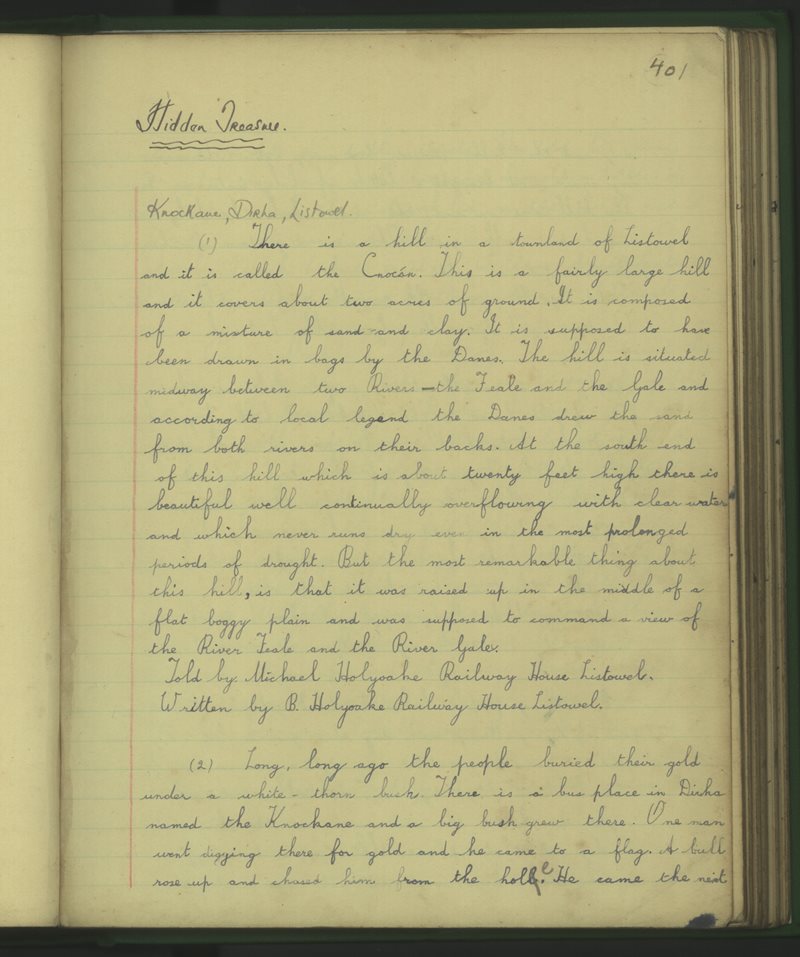 401
Hidden Treasure.
Knockane, Dirha, Listowel.
(1) There is a hill in a townland of Listowel
and it is called the Cnocán. This is a fairly large hill
and it covers about two acres of ground. It is composed
of a mixture of sand and clay. It is supposed to have
been drawn in bags by the Danes. The hill is situated
midway between two Rivers - the Feale and the Gale and
according to local legend the Danes drew the sand
from both rivers on their backs. At the south end
of this hill which is about twenty feet high there is
beautiful well continually overflowing with clear water
and which never runs dry even in the most prolonged
periods of drought. But the most remarkable thing about
this hill, is that it was raised up in the middle of a
flat boggy plain and was supposed to command a view of
the River Feale and the River Gale.
Told by Michael Holyoake Railway House Listowel.
Written by B. Holyoake Railway House Listowel.
(2) Long, long ago the people buried their gold
under a white-thorn bush. There is a place in Dirha
named the Knockane and a big bush grew there. One man
went digging there for gold and he came to a flag. A bull
rose up and chased him from the hole. He came the next